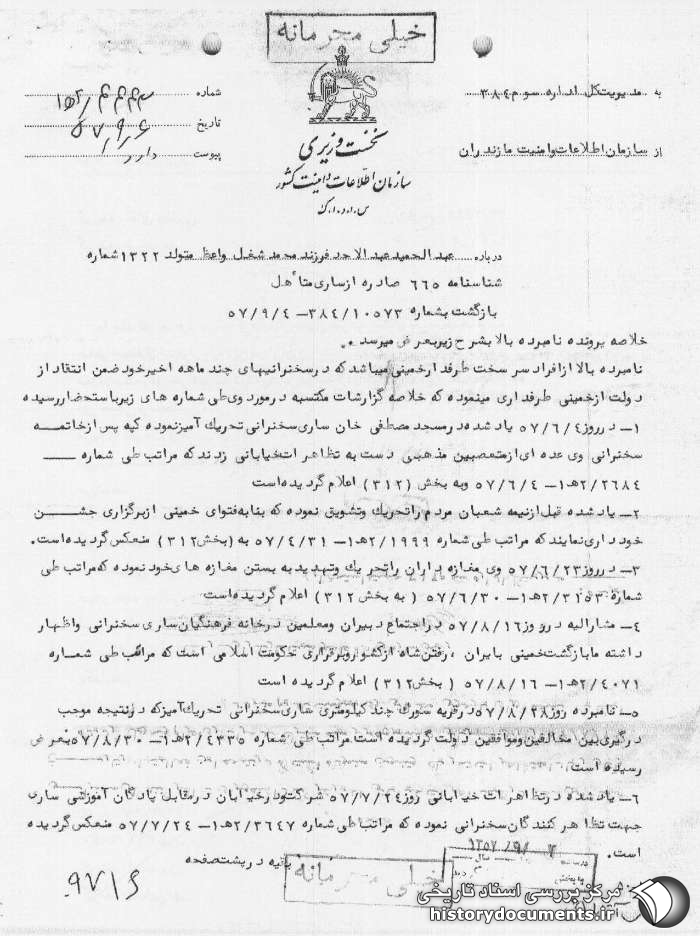 خیلی محرمانه
به مدیریت کل اداره سوم ۳۸۴
شماره
تاریخ ۵۷/۹/۶
از سازمان اطلاعات و امنیت مازندران
پیوست دارد
نخست وزیری
سازمان اطلاعات و امنیت کشور
س.ا.و.ا.ک
درباره عبدالحمید عبدالاحد فرزند محمد شغل واعظ متولد ۱۳۲۲ شماره
شناسنامه ۶۶۵ صادره از ساری متأهل
بازگشت بشماره ۳۸۴/۱۰۵۷۳–۵۷/۹/۴
خلاصه پرونده نامبرده بالا بشرح زیر بعرض میرسد .
نامبرده بالا از افراد سرسخت طرفدار خمینی میباشد که در سخنرانیهای چند ماهه اخیر خود ضمن انتقاد از
دولت از خمینی طرفداری مینموده که خلاصه گزارشات مکتسبه در مورد وی طی شماره های زیر باستحضار رسیده
۱– در روز ۵۷/۶/۴ یاد شده در مسجد مصطفی خان ساری سخنرانی تحریک آمیز نموده که پس از خاتمه
سخنرانی وی عده ای از متعصبین مذهبی دست به تظاهرات خیابانی زدند که مراتب طی شماره
۲/۲۶۸۴ه۱–۵۷/۶/۴ وبه بخش (۳۱۲) اعلام گردیده است
۲– یاد شده قبل از نیمه شعبان مردم را تحریک وتشویق نموده که بنا به فتوای خمینی از برگزاری جشن
خودداری نمایند که مراتب طی شماره ۲/۱۹۹۹ه۱–۵۷/۴/۳۱ به (بخش ۳۱۲) منعکس گردیده است.
۳– در روز ۵۷/۶/۲۳ وی مغازه داران را تحریک وتهدید به بستن مغازه های خود نموده که مراتب طی
شماره ۲/۳۱۵۳ه۱–۵۷/۶/۳۰ (به بخش ۳۱۲) اعلام گردیده است
۴– مشارالیه در روز ۵۷/۸/۱۶ در اجتماع دبیران ومعلمین در خانه فرهنگیان ساری سخنرانی واظهار
داشته ما بازگشت خمینی بایران ، رفتن شاه از کشور وبرقراری حکومت اسلامی است که مراتب طی شماره
۲/۴۰۷۱ه۱–۵۷/۸/۱۶ (بخش ۳۱۲) اعلام گردیده است
۵– نامبرده روز ۵۷/۸/۲۸ در قریه سورک چند کیلومتری ساری سخنرانی تحریک آمیز که در نتیجه موجب
درگیری بین مخالفین وموافقین دولت گردیده است مراتب طی شماره ۲/۴۳۳۵ه۱–۵۷/۸/۳۰ بعرض
رسیده است
۶– یاد شده در تظاهرات خیابانی روز ۵۷/۷/۲۴ شرکت و در خیابان در مقابل پادگان آموزشی ساری
جهت تظاهرکنندگان سخنرانی نموده که مراتب طی شماره ۲/۳۶۴۷ه۱–۵۷/۷/۲۴ منعکس گردیده
است.
بقیه در پشت صفحه
۱۳۵۷/۹/۷
خیلی محرمانه
مرکز بررسی اسناد تاریخی
historydocuments.ir